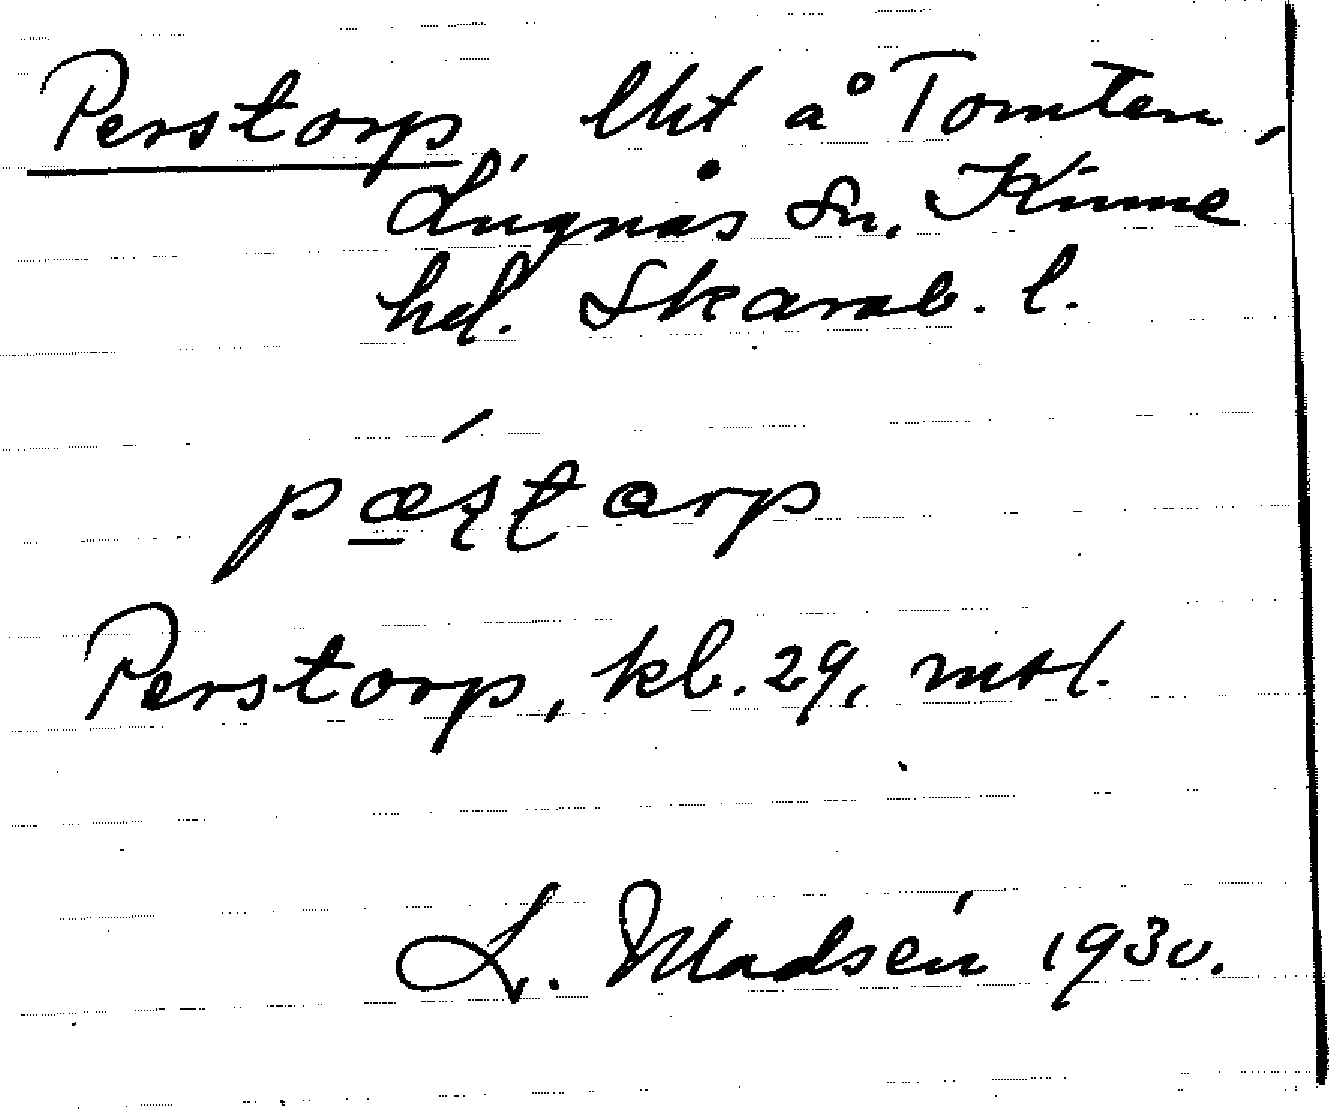 Perstorp, lht å Tomten,
Lugnås sn. Kinne
hd. Skarab. l.
pæ̲ʂʈarp
Perstorp, kb. 29, mtl.
L. Madsén 1930.